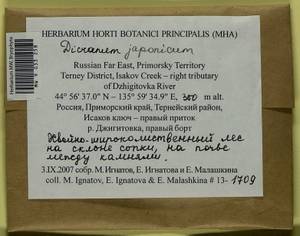 HERBARIUM HORTI BOTANICI PRINCIPALIS (MHA)
Dicranum japonicum
Russian Far East, Primorsky Territory
Terney District, Isakov Creek – right tributary
of Dzhigitovka River
44° 56' 37.0" N – 135° 59' 34.9" E, 300 m alt.
Россия, Приморский край, Тернейский район,
Исаков ключ – правый приток
р. Джигитовка, правый борт
Хвойно-широколиственный лес
на склоне сопки, на почве
между камнями.
3.IX.2007 собр. М. Игнатов, Е. Игнатова и Е. Малашкина
coll. M. Ignatov, E. Ignatova & E. Malashkina # 13-1709